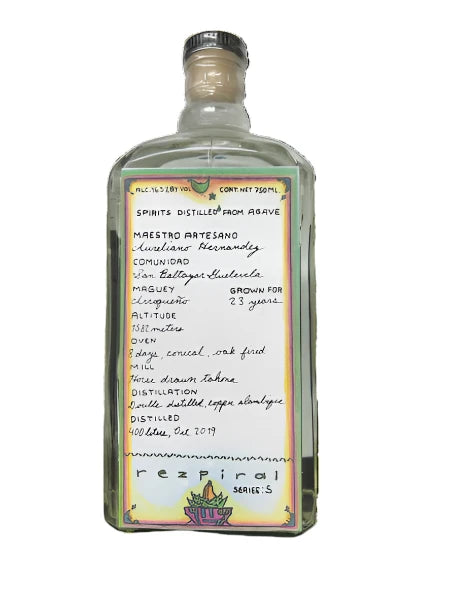 CONT. NET 750 ML.
SPIRITS DISTILLED FROM AGAVE
MAESTRO ARTESANO
Aureliano Hernandez
COMUNIDAD
San Baltazar Guelavila
MAGUEY GROWN FOR
Arroqueño 23 years
ALTITUDE
1582 meters
OVEN
8 days, conical, oak fired
MILL
Horse drawn tahona
DISTILLATION
Double distilled, copper alambique
DISTILLED
400 liters, Oct 2019
rezpiral
SERIES: S